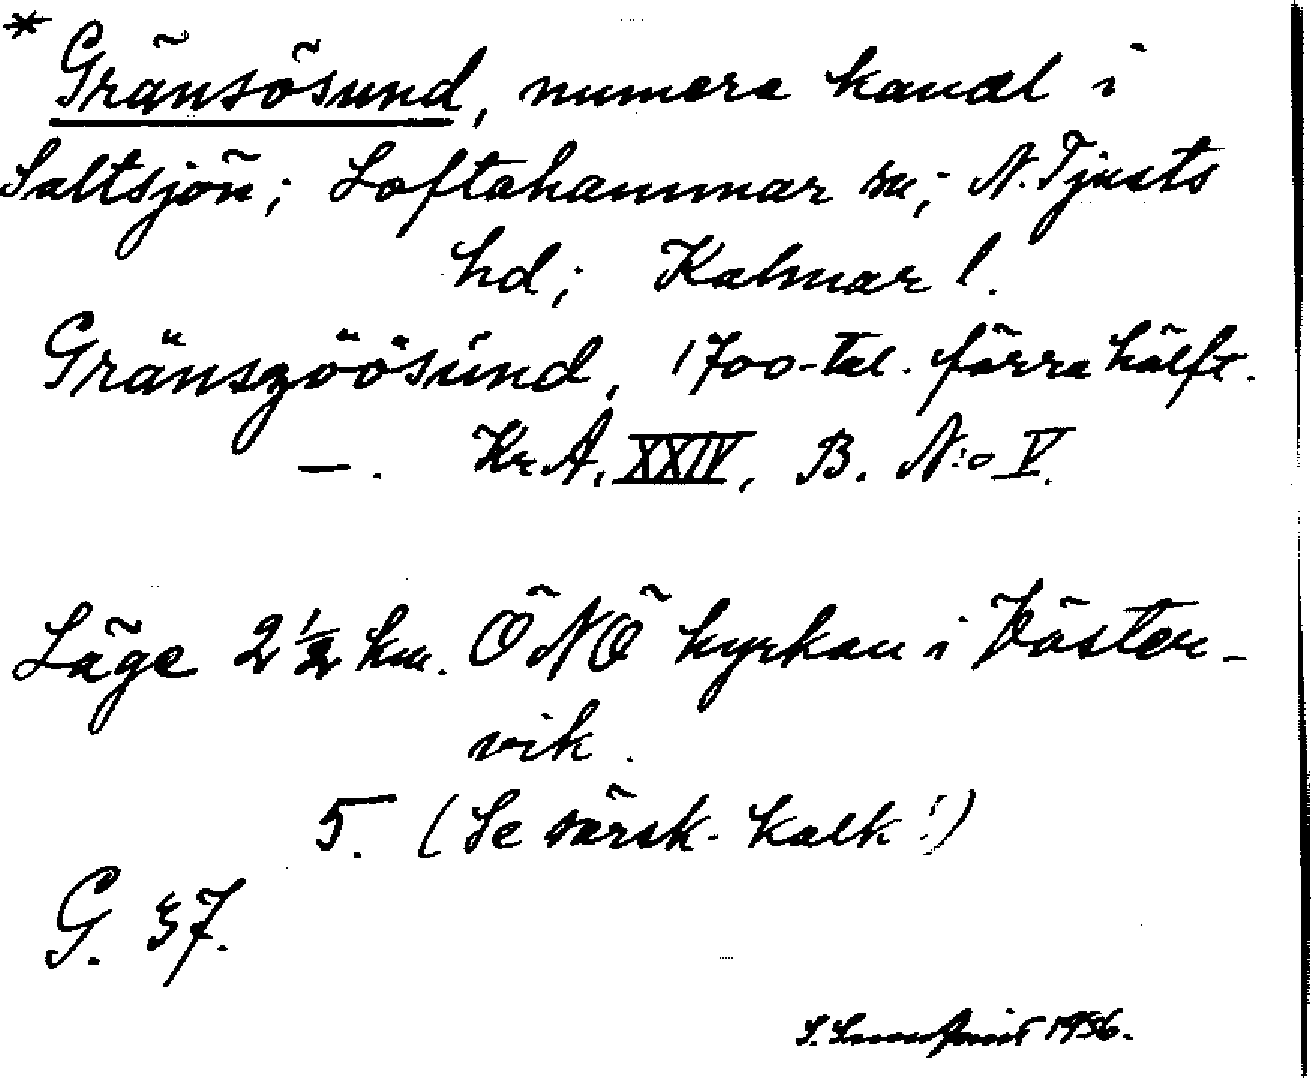 * Gränsösund, numera kanal i
Saltsjön; Loftahammar sn; N. Tjusts
hd; Kalmar l.
Gränszöösund, 1700-tal. förra hälft.
— . Kr A. XXIV, B. N:o V.
Läge 2 1/2 km. ÖNÖ kyrkan i Väster-
vik.
5. (Se särsk. kalk!)
G. 37.
1936.